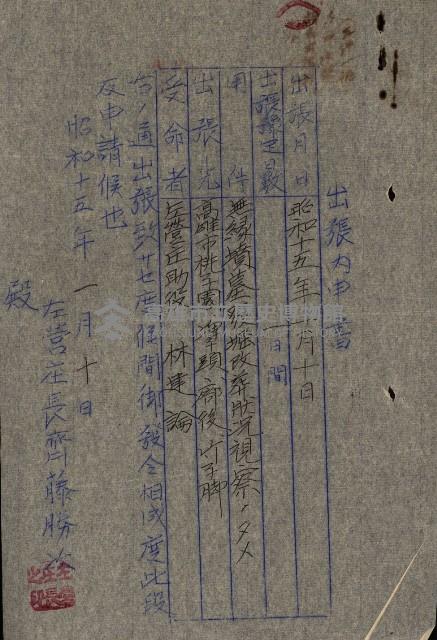 出張内申書
出張月日 昭和十五年一月十日
出張豫定日数 一日間
用件 無縁墳墓発掘改葬状況視察ノタメ
出張先 高雄市桃子園 埤頭 廍後 竹子脚
受命者 左營庄助役 林建論
右ノ通出張致サセ度候間御發令相成度此段
及申請候也
昭和十五年一月十日
左營庄長齊藤勝
殿